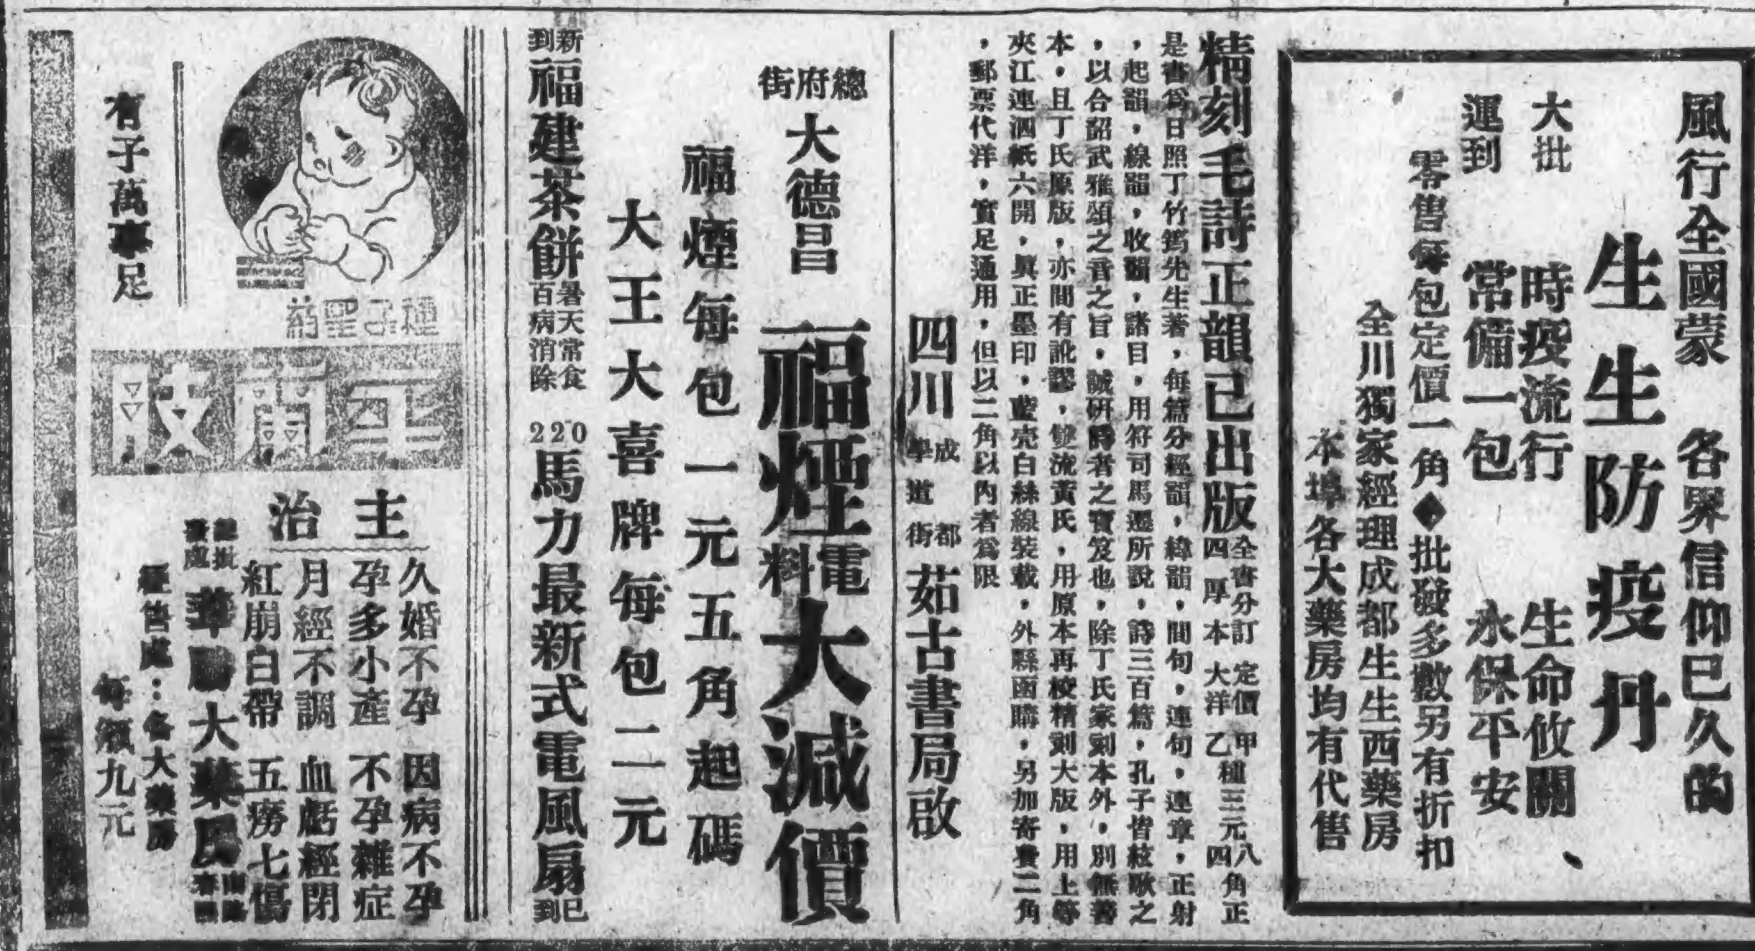 風行全國蒙　各界信仰已久的
生生防疫丹
大批運到
時疫流行　生命攸關、
常備一包　永保平安
零售每包定價一角◆批發多數另有折扣
全川獨家經理成都生生西藥房
本埠各大藥房均有代售
精刻毛詩正韻已出版
全書分訂四厚本
定價甲種三元八角正
大洋乙四
是書爲日照丁竹筠先生著，每篇分經韻，緯韻，間句，連句，連章，正射
，起韻，線韻，收韻，諸目，用符司馬遷所說，詩三百篇，孔子皆絃歌之
，以合韶武雅頌之音之旨，誠研詩者之寶笈也，除丁氏家刻本外，別無善
本，且丁氏原版，亦間有訛謬，雙流黃氏，用原本再校精刻大版，用上等
夾江連泗紙六開，眞正墨印，藍壳白絲線裝載，外縣函購，另加寄費二角
，郵票代洋，實足通用，但以二角以內者爲限
四川成都學道街茹古書局啟
總府街
大德昌
福煙電料大減價
福煙每包一元五角起碼
大王大喜牌每包二元
新到福建茶餅暑天常食百病消除
220馬力最新式電風扇已到
種子聖葯
有子萬事足
主治
久婚不孕　因病不孕
孕多小產　不孕雜症
月經不調　血虧經閉
紅崩白帶　五癆七傷
大藥房
經售處：各大藥房
每瓶九元